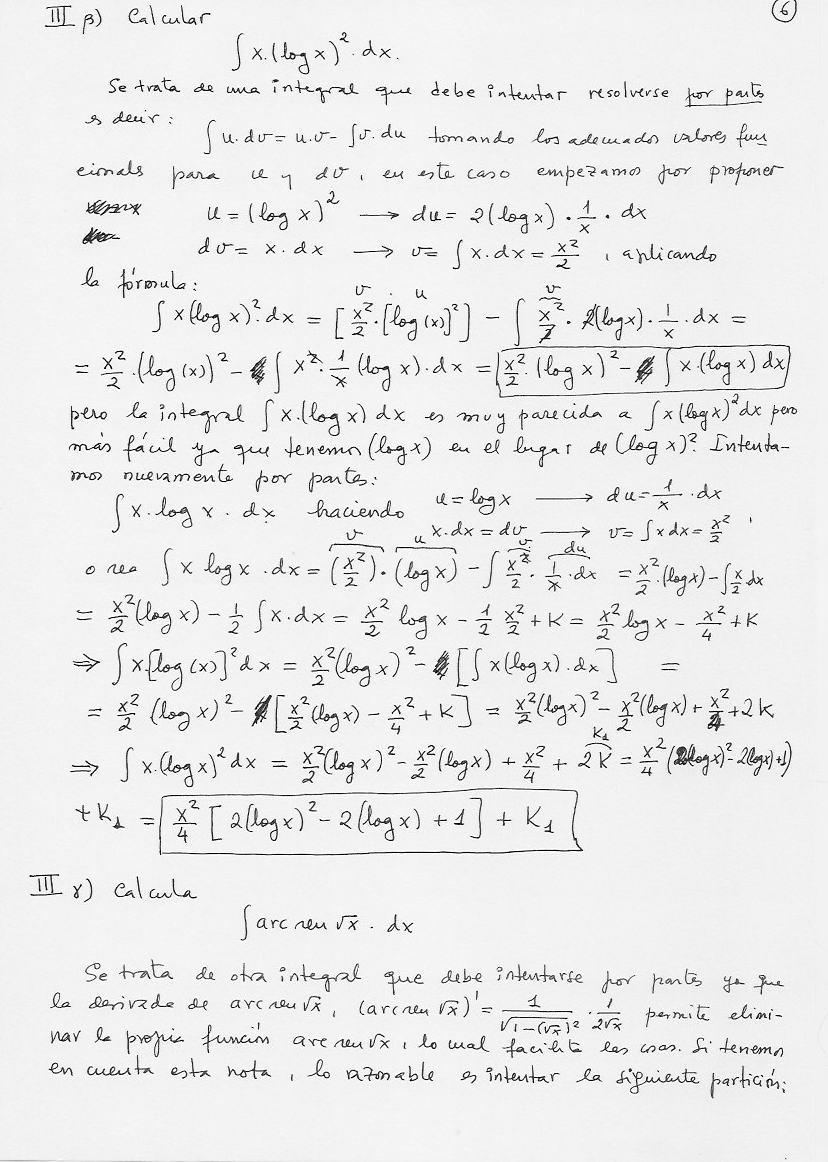 III β) Calcular ⑥
∫ x.(log x)². dx.
Se trata de una integral que debe intentar resolverse por partes
es decir:
∫ u. dv = u.v - ∫ v. du tomando los adecuados valores fun
cionals para u y dv, en este caso empezamos por proponer
u = (log x)² → du = 2(log x) · 1/x · dx
dv = x · dx → v = ∫ x. dx = x²/2, aplicando
la fórmula:
v · u v
∫ x(log x)². dx = [x²/2 · [log(x)]²] - ∫ x²/2 · 2(log x) · 1/x · dx =
= x²/2 · (log(x))² - ∫ x² · 1/x (log x) · dx = x²/2 · (log x)² - ∫ x.(log x) dx
pero la integral ∫ x.(log x) dx es muy parecida a ∫ x(log x)² dx pero
más fácil ya que tenemos (log x) en el lugar de (log x)². Intenta-
mos nuevamente por partes:
∫ x. log x. dx haciendo u = log x → du = 1/x · dx
x. dx = dv → v = ∫ x dx = x²/2,
v u v du
o sea ∫ x log x · dx = (x²/2) · (log x) - ∫ x²/2 · 1/x · dx = x²/2 · (log x) - ∫ x/2 dx
= x²/2 (log x) - 1/2 ∫ x. dx = x²/2 log x - 1/2 x²/2 + K = x²/2 log x - x²/4 + K
⇒ ∫ x.[log(x)]² dx = x²/2 (log x)² - [∫ x(log x). dx] =
= x²/2 (log x)² - [x²/2 (log x) - x²/4 + K] = x²/2 (log x)² - x²/2 (log x) + x²/4 + 2K
K₁
⇒ ∫ x.(log x)² dx = x²/2 (log x)² - x²/2 (log x) + x²/4 + 2K = x²/4 (2(log x)² - 2(log x) + 1)
+ K₁ = x²/4 [2(log x)² - 2(log x) + 1] + K₁
III γ) Calcula
∫ arc sen √x · dx
Se trata de otra integral que debe intentarse por partes ya que
la derivada de arc sen √x, (arc sen √x)' = 1/√(1-(√x)²) · 1/(2√x) permite elimi-
nar la propia función arc sen √x, lo cual facilita las cosas. Si tenemos
en cuenta esta nota, lo razonable es intentar la siguiente partición: